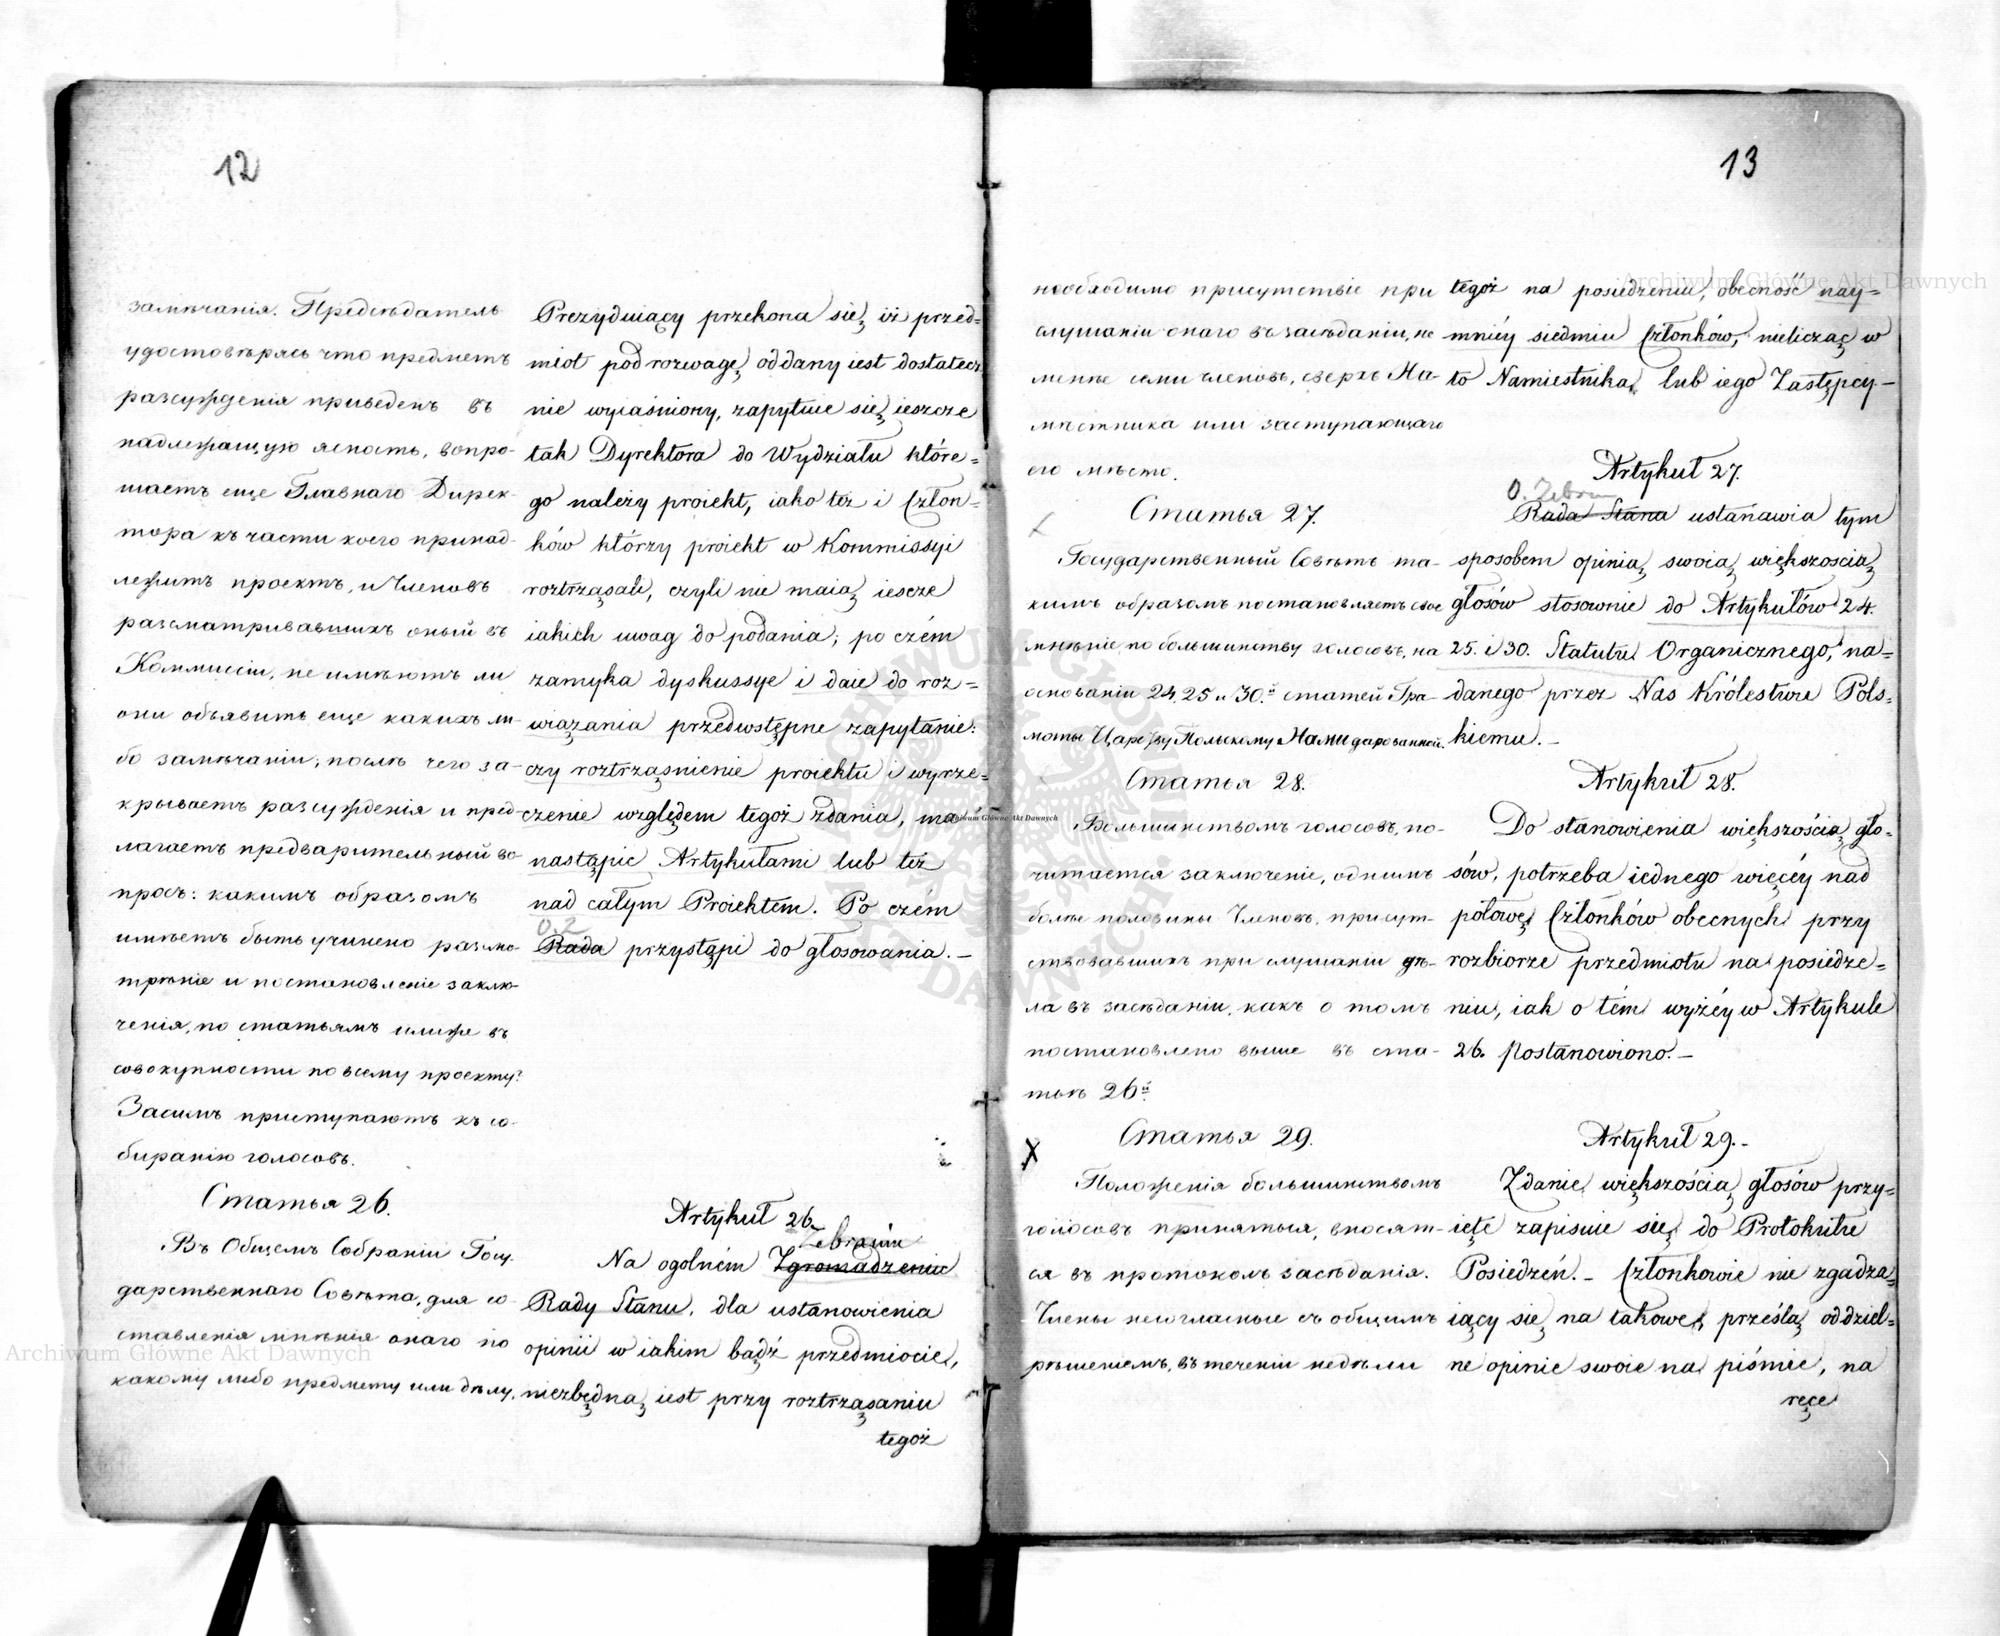 12
замѣчанія. Предсѣдатель
удостовѣрясь что предметъ
разсужденія приведенъ въ
надлежащую ясность, вопро-
шаетъ еще Главнаго Дирек-
тора къ части коего принад-
лежитъ проектъ, и Членовъ
разсматривавшихъ оный въ
Коммисіи, не имѣютъ ли
они объявить еще какихъ ли-
бо замѣчаніи; послѣ чего за-
крываетъ разсужденія и пред-
лагаетъ предварительный во-
просъ: какимъ образомъ
имѣетъ быть учинено разсмо-
трѣніе и постановленіе заклю-
ченія, по статьямъ или же въ
совокупности по всему проекту?
Засимъ приступаютъ къ со-
биранію голосовъ.
Статья 26.
Въ Общемъ Собраніи Госу-
дарственнаго Совѣта, для со-
ставленія мнѣнія онаго по
какому либо предмету или дѣлу,
Prezyduiący przekona się, iż przed=
miot pod rozwagę oddany iest dostatecz
nie wyiaśniony, zapytuie się ieszcze
tak Dyrektora do Wydziału które=
go należy proiekt, iako też i Człon=
ków którzy proiekt w Kommissyi
roztrząsali, czyli nie maią iescze
iakich uwag do podania; po czém
zamyka dyskussye i daie do roz=
wiązania przedwstępne zapytanie:
czy roztrząsnienie proiektu i wyrze=
czenie względem tegoż zdania, ma
nastąpic Artykułami lub też
nad całym Proiektem. Po czém
O.Z
Rada przystąpi do głosowania.–
Artykuł 26.
Zebraniu
Na ogolném Zgromadzeniu
Rady Stanu, dla ustanowienia
opinii w iakim bądź przedmiocie,
niezbędną iest przy roztrząsaniu
tegoż
13
необходимо присутствіе при
слушаніи онаго въ засѣданіи, не
менѣе семи членовъ, сверхъ На-
мѣстника или заступающаго
его мѣсто.
Статья 27.
Государственный Совѣтъ та-
кимъ образомъ постановляетъ свое
мнѣніе по большинству голосовъ, на
основаніи 24, 25 и 30.й статей Гра-
моты Царству Польскому Нами дарованной.
Статья 28.
Большинствомъ голосовъ, по-
читается заключеніе, однимъ
болѣе половины Членовъ, присут-
ствовавшихъ при слушаніи дѣ-
ла въ засѣданіи, какъ о томъ
постановлено выше въ ста-
тьѣ 26й
Статья 29.
Положенія большинствомъ
голосовъ принятыя, вносят-
ся въ протоколъ засѣданія.
Члены несогласные съ общимъ
рѣшеніемъ, въ теченіи недѣли
tegoż na posiedzeniu, obecność nay=
mniéy siedmiu Członków, nielicząc w
to Namiestnika, lub iego Zastępcy.–
Artykuł 27.
O. Zebran
Rada Stanu ustanawia tym
sposobem opinią swoią większością
głosów stosownie do Artykułów 24.
25. i 30. Statutu Organicznego, na=
danego przez Nas Królestwu Pols=
kiemu.–
Artykuł 28.
Do stanowienia większością gło=
sów, potrzeba iednego więcéy nad
połowę Członków obecnych przy
rozbiorze przedmiotu na posiedze=
niu, iak o tém wyżéy w Artykule
26. postanowiono.–
Artykuł 29.–
Zdanie większością głosów przy=
ięte zapisuie się do Protokułu
Posiedzeń.– Członkowie nie zgadza=
iący się na takowe, prześlą oddziel=
ne opinie swoie na piśmie, na
ręce
Archiwum Główne Akt Dawnych
Archiwum Główne Akt Dawnych
Archiwum Główne Akt Dawnych